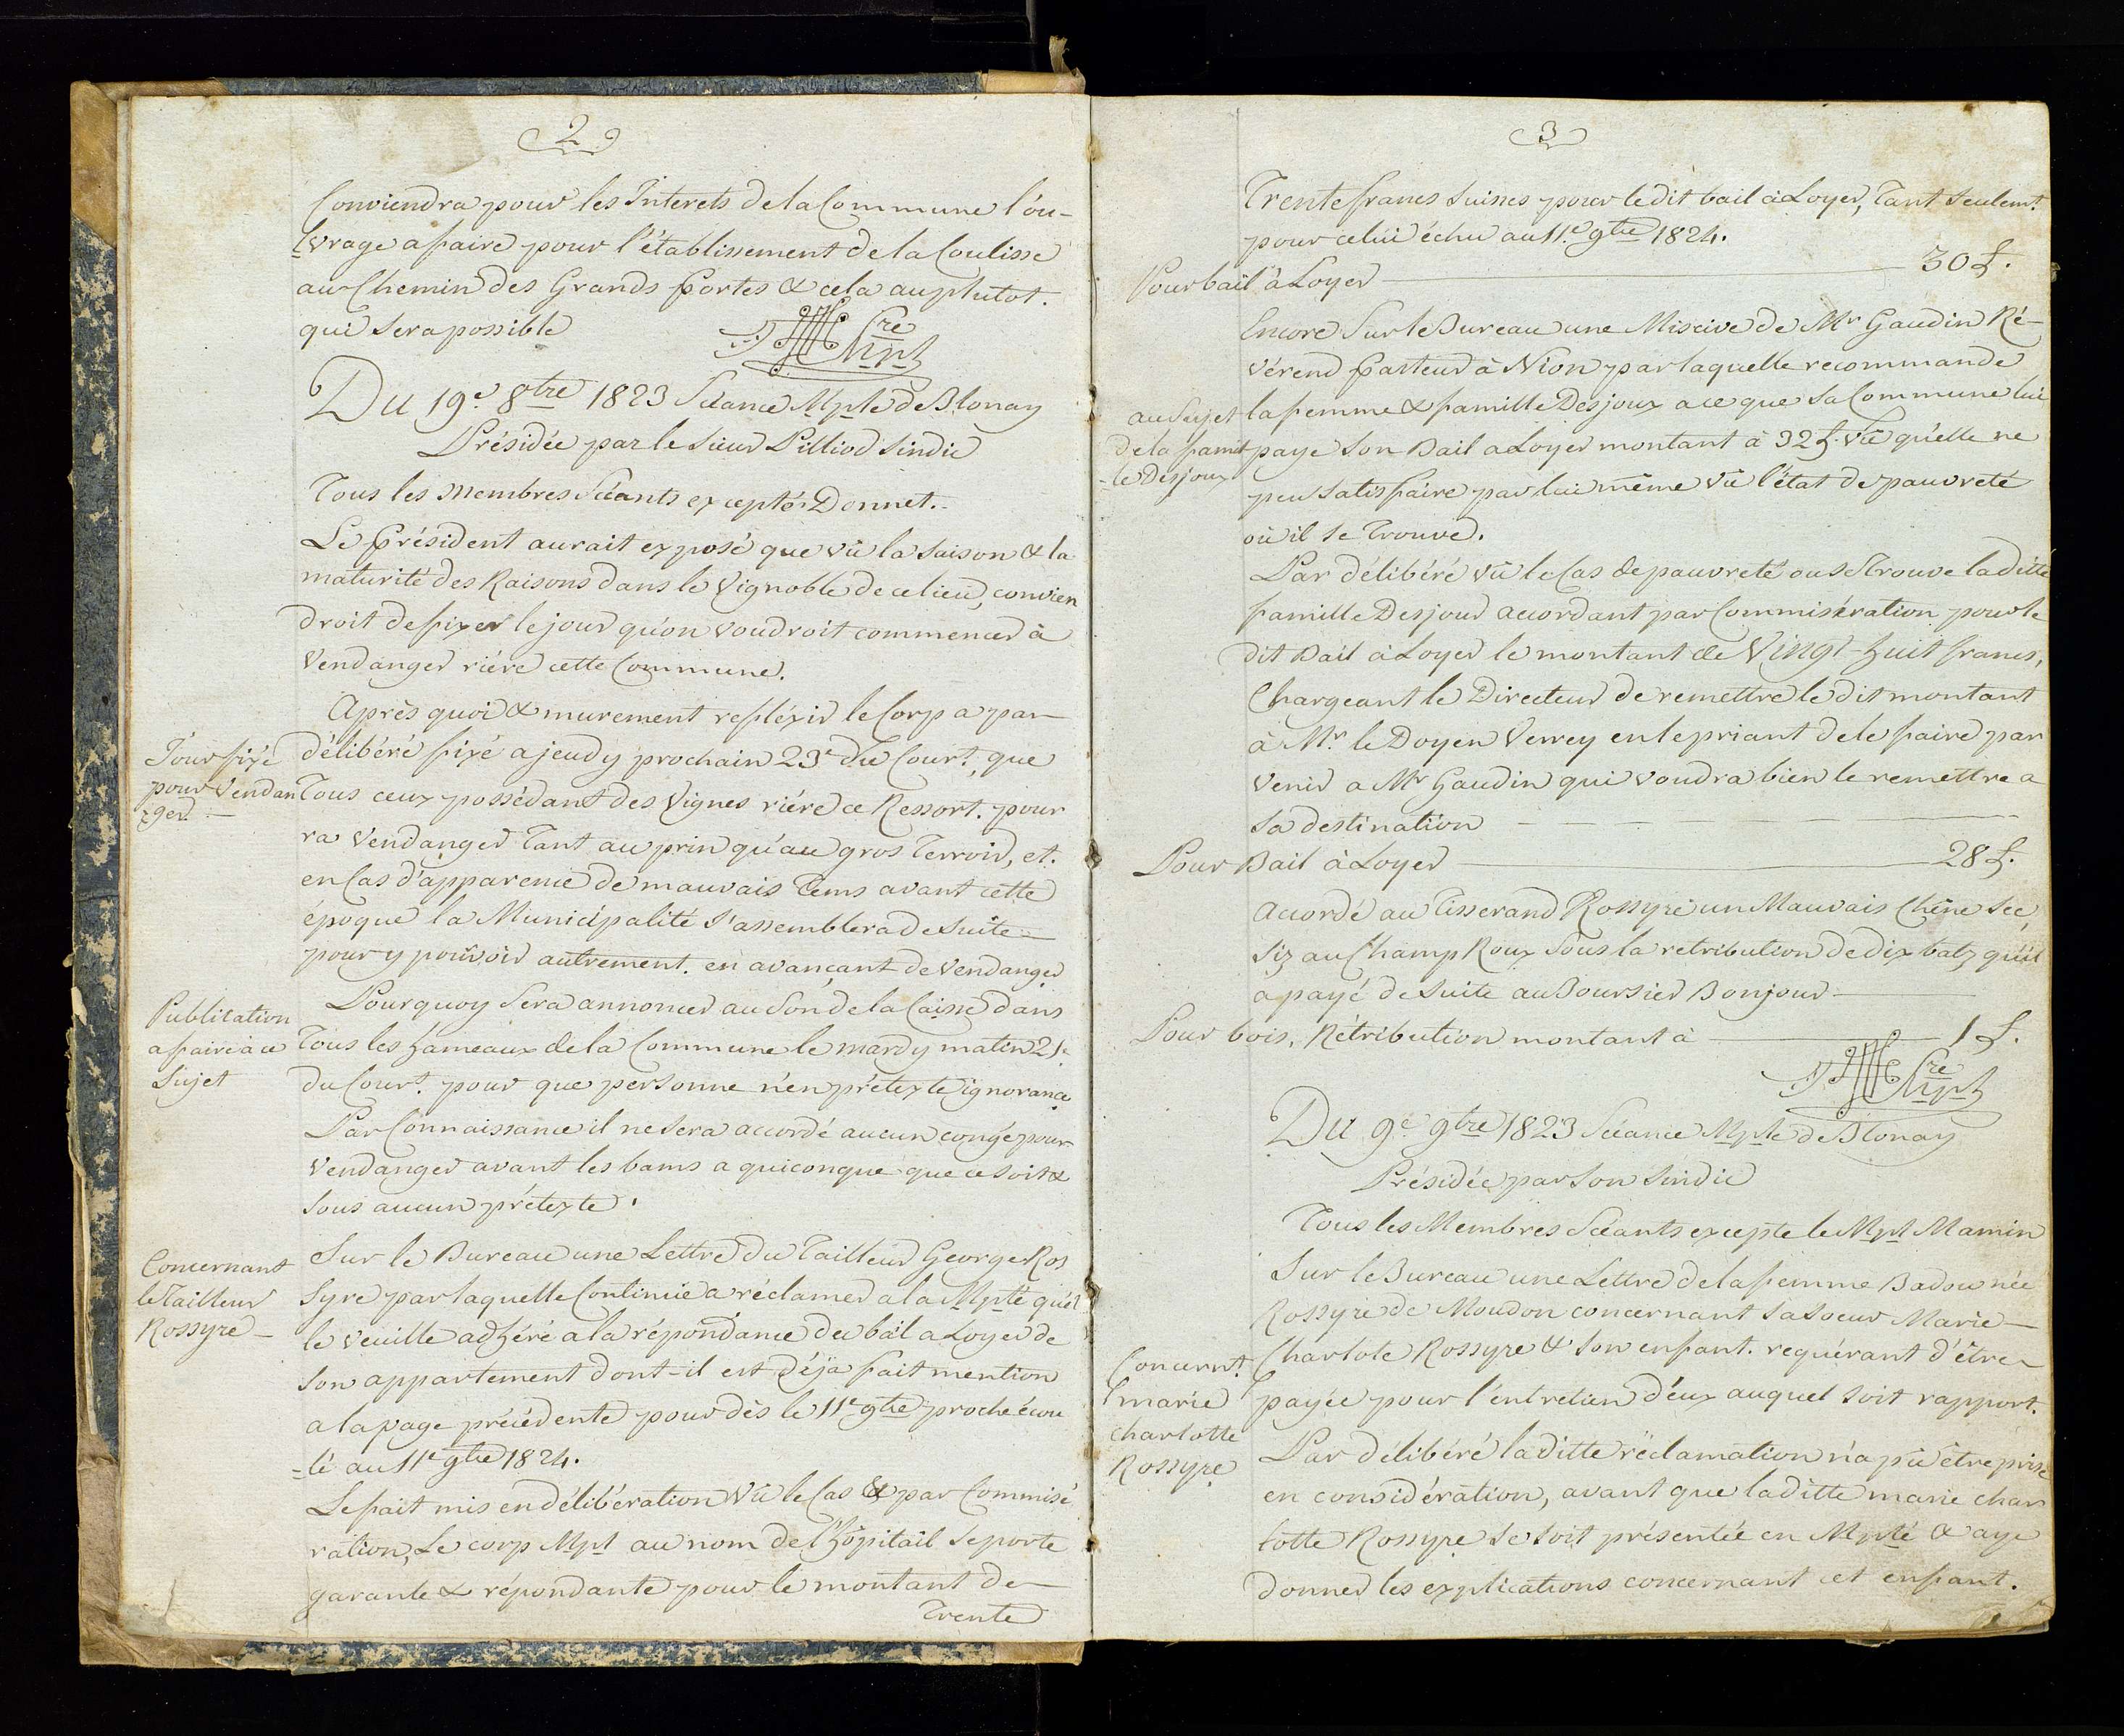 2
Conviendra pour les Interets de la Commune l'ou-
-vrage a faire pour l'établissement de la Coulisse
au Chemin des Grands Portes & cela au plutot.
qui sera possible
Cre
Mpl
Du 19e 8bre 1823 Séance Mple de Blonay
Présidée par le Sieur Pilliod Sindic
Tous les Membres Séants excepté Donnet.
Le Président aurait exposé que vû la saison & la
maturité des Raisons dans le Vignoble de ce lieu, convien
droit de fixer le jour qu'on voudroit commencer à
Vendanger riére cette Commune.
Après quoi & murement refléxir le Corp a par
Jour fixé
pour Vendan
-ger.
délibéré fixé a jeudy prochain 23e du Court. que
Tous ceux possédant des Vignes riére ce Ressort. pour
ra Vendanger Tant au prin qu'au gros Terroir, et.
en Cas d'apparence de mauvais Tems avant cette
époque la Municipalité s'assemblera de suite
pour y pourvoir autrement. en avançant de Vendanger
Publication
a faire à ce
Sujet
Pourquoy sera annoncer au Son de la Caisse dans
Tous les hameaux de la Commune le mardy matin 21e
du Court. pour que personne n'en prétexte ignorance
Par Connaissance il ne sera accordé aucun congé pour
Vendanger avant les bams a quiconque que ce soit &
sous aucun prétexte.
Concernant
le Tailleur
Rossyre
Sur le Bureau une Lettre du Tailleur George Ros
syre par laquelle Continue a réclamer a la Mplté qu'el
le veuille adhéré a la répondance du bail a Loyer de
son appartement dont-il est déja fait mention
a la page précédente pour dès le 11e 9bre proche écou
-lé au 11e 9bre 1824.
Le fait mis en délibération vû le Cas & par Commisé
ration, Le corp Mpl au nom de l'hôpitail se porte
garante & répondante pour le montant de
Trente
3
Trente francs Suisses pour le dit bail à Loyer, Tant Seulemt.
pour celui échu au 11e 9bre 1824.
Pour bail à Loyer 30 £.
Encore Sur le Bureau une Miscive de Mr Gaudin Ré-
vérend Pasteur à Nion par laquelle recommande
au Sujet
de la famil
-le Desjoux
la femme & famille Desjoux a ce que sa Commune lui
paye son Bail a Loyer montant à 32 £. vû qu'elle ne
peu satisfaire par lui même vû l'état de pauvreté
où il se Trouve.
Par délibéré vû le Cas de pauvreté ou se Trouve la ditte
famille Desjour accordant par Commisération pour le
dit Bail à Loyer le montant de Vingt-huit francs,
Chargeant le Directeur de remettre le dit montant
à Mr. le Doyen Verrey en le priant de le faire par
venir a Mr Gaudin qui voudra bien le remettre a
sa destination
Pour Bail à Loyer 28 £.
Accordé au Tisserand Rossyre un Mauvais Chêne sec,
siz au Champ Roux sous la retribution de dix batz qu'il
a payé de suite au Boursier Bonjour
Pour bois, Rétribution montant à 1 £.
Cre
Mpl
Du 9e 9bre 1823 Séance Mple de Blonay
Présidée par Son Sindic
Tous les Membres Séants excepte le Mpl Mamin
Sur le Bureau une Lettre de la femme Badou née
Rossyre de Moudon concernant sa Soeur Marie
Concernt.
marie
charlotte
Rossyre
Charlote Rossyre & son enfant. requérant d'être
payée pour l'entretien d'eux auquel soit rapport.
Par délibéré la ditte réclamation n'a pû être prise
en considération, avant que la ditte marie char
lotte Rossyre se soit présentée en Mplté & aye
donner les explications concernant cet enfant.